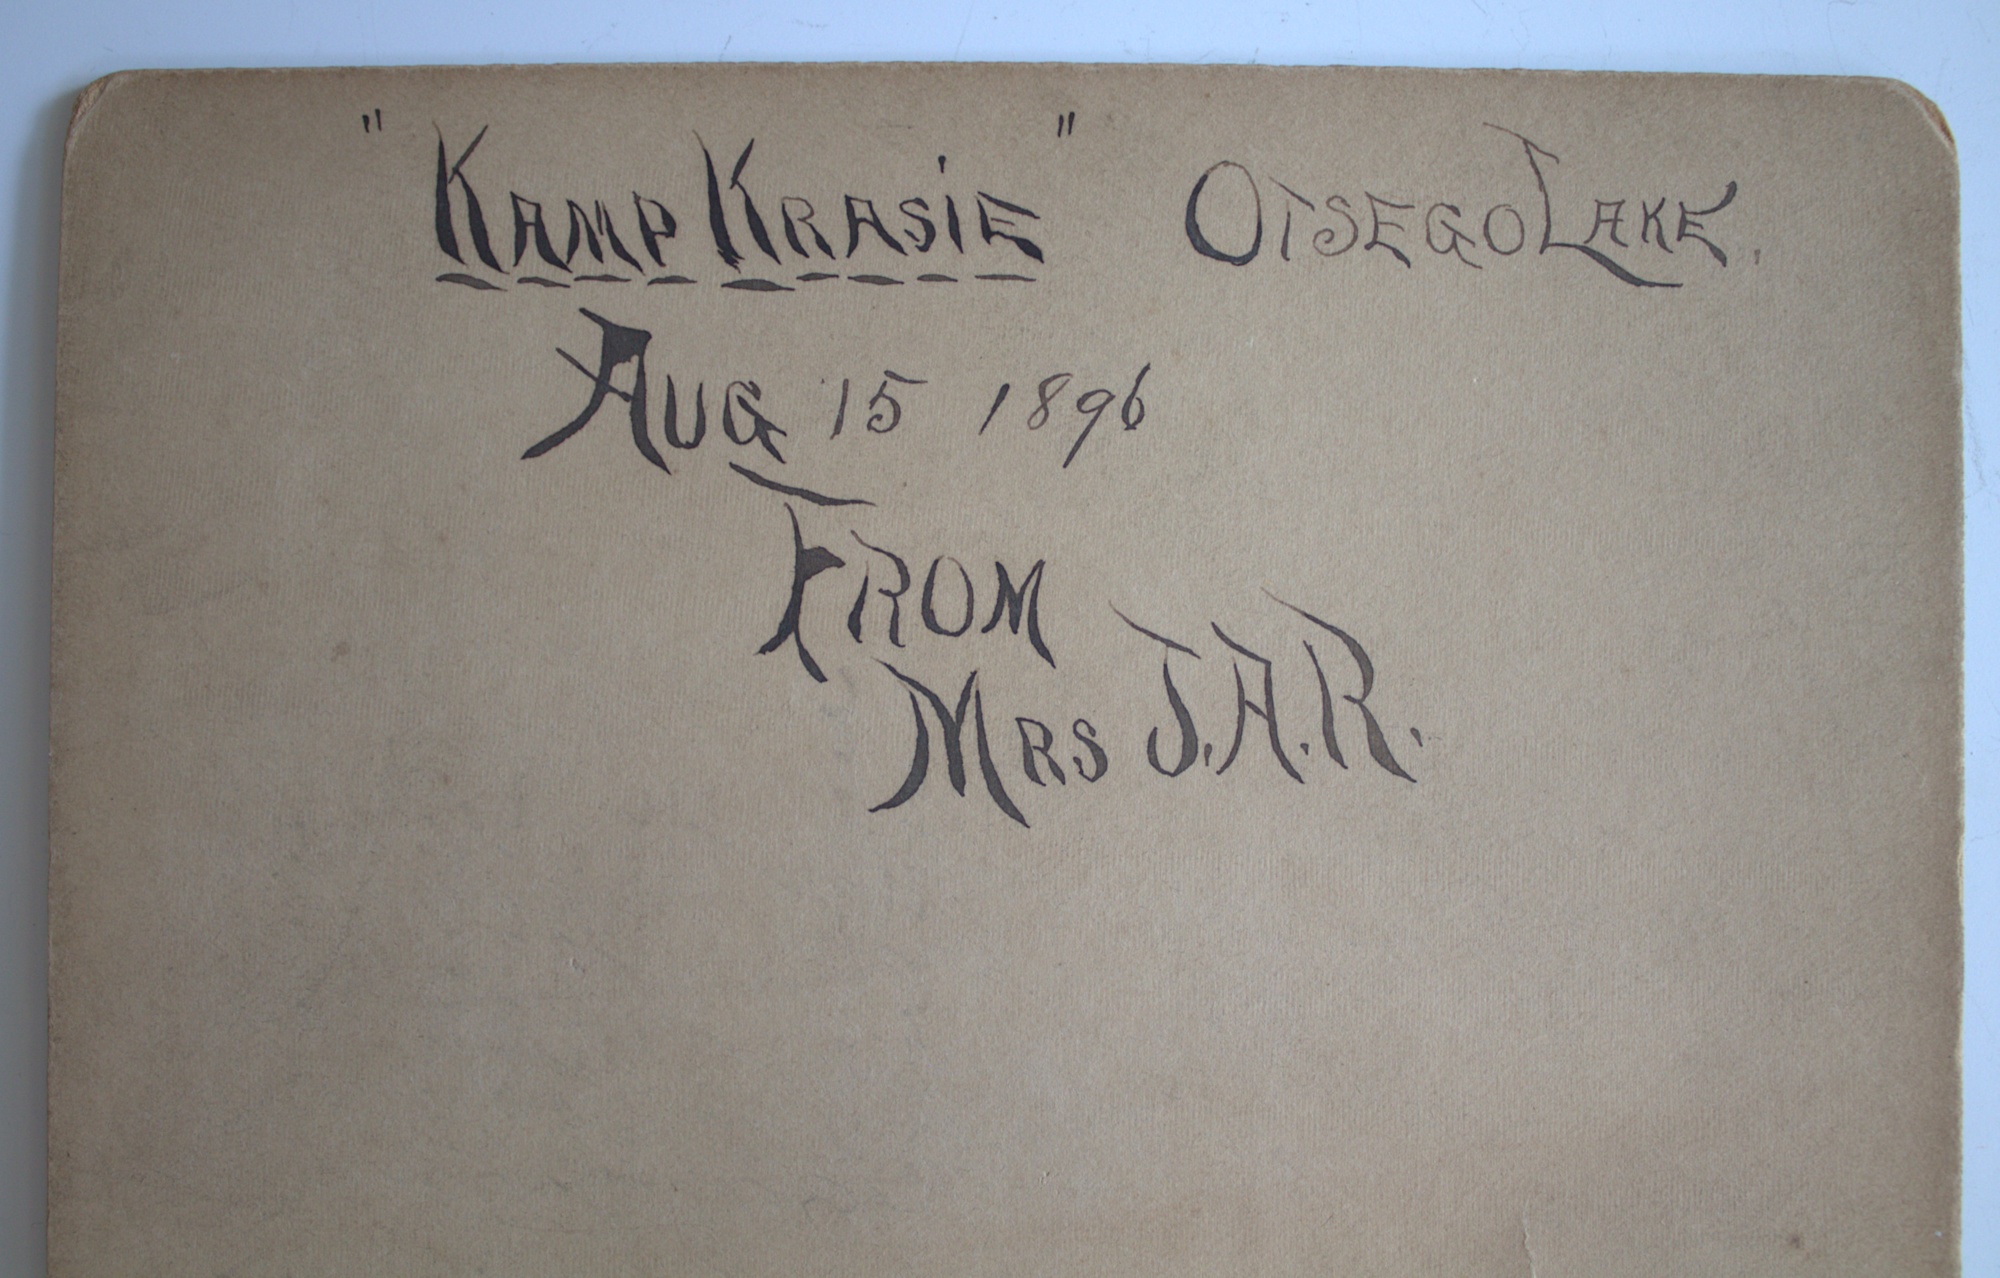 "KAMP KRASIE" OTSEGO LAKE.
AUG 15 1896
FROM
MRS J.A.R.